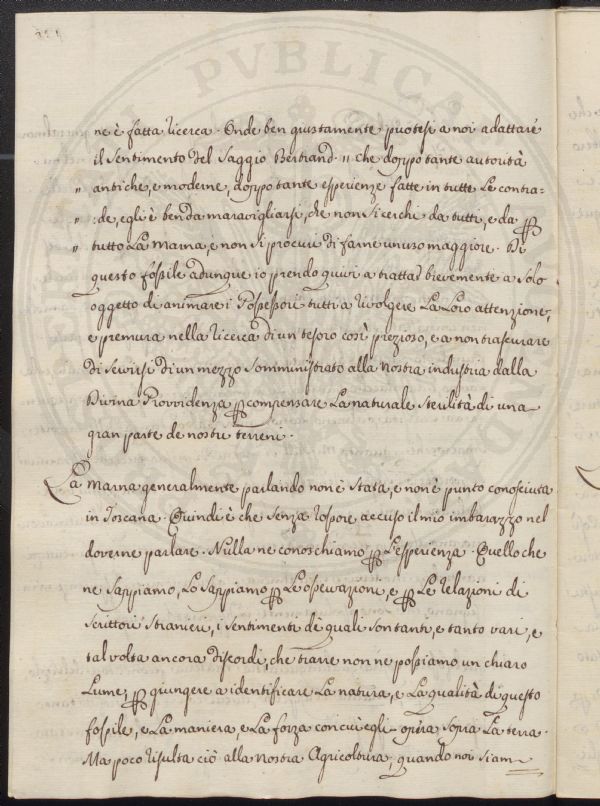 ne è fatta ricerca. Onde ben giustamente puotesi a noi adattare
il Sentimento del Saggio Bertrand " che doppo tante autorità
" antiche, e moderne, doppo tante esperienze fatte in tutte Le contra=
" :de, egli è ben da maravigliarsi, che non si cerchi da tutti, e da p
" tutto La Marna, e non si procuri di farne un uso maggiore. Di
questo fossile adunque io prendo quivi a trattar brevemente a solo
oggetto di animare i Possessori tutti a rivolgere La Loro attenzione,
e premura nella ricerca di un tesoro così prezioso, e a non trascurare
di servirsi di un mezzo somministrato alla nostra industria dalla
Divina Provvidenza p compensare La naturale sterilità di una
gran parte de nostri terreni.
La Marna generalmente parlando non è stata, e non è punto conosciuta
in Toscana. Quindi è che senza rossore accuso il mio imbarazzo nel
doverne parlare. Nulla ne conoschiamo p L'esperienza. Quello che
ne sappiamo, Lo sappiamo p Le osservazioni, e p Le relazioni di
Scrittori Stranieri, i sentimenti de quali son tanti, e tanto vari, e
tal volta ancora discordi, che trarre non ne possiamo un chiaro
Lume, p giungere a identificare La natura, e La qualità di questo
fossile, e La maniera, e La forza con cui egli opera sopra La terra.
Ma poco risulta ciò alla nostra Agricoltura, quando noi siam
PVBLICA